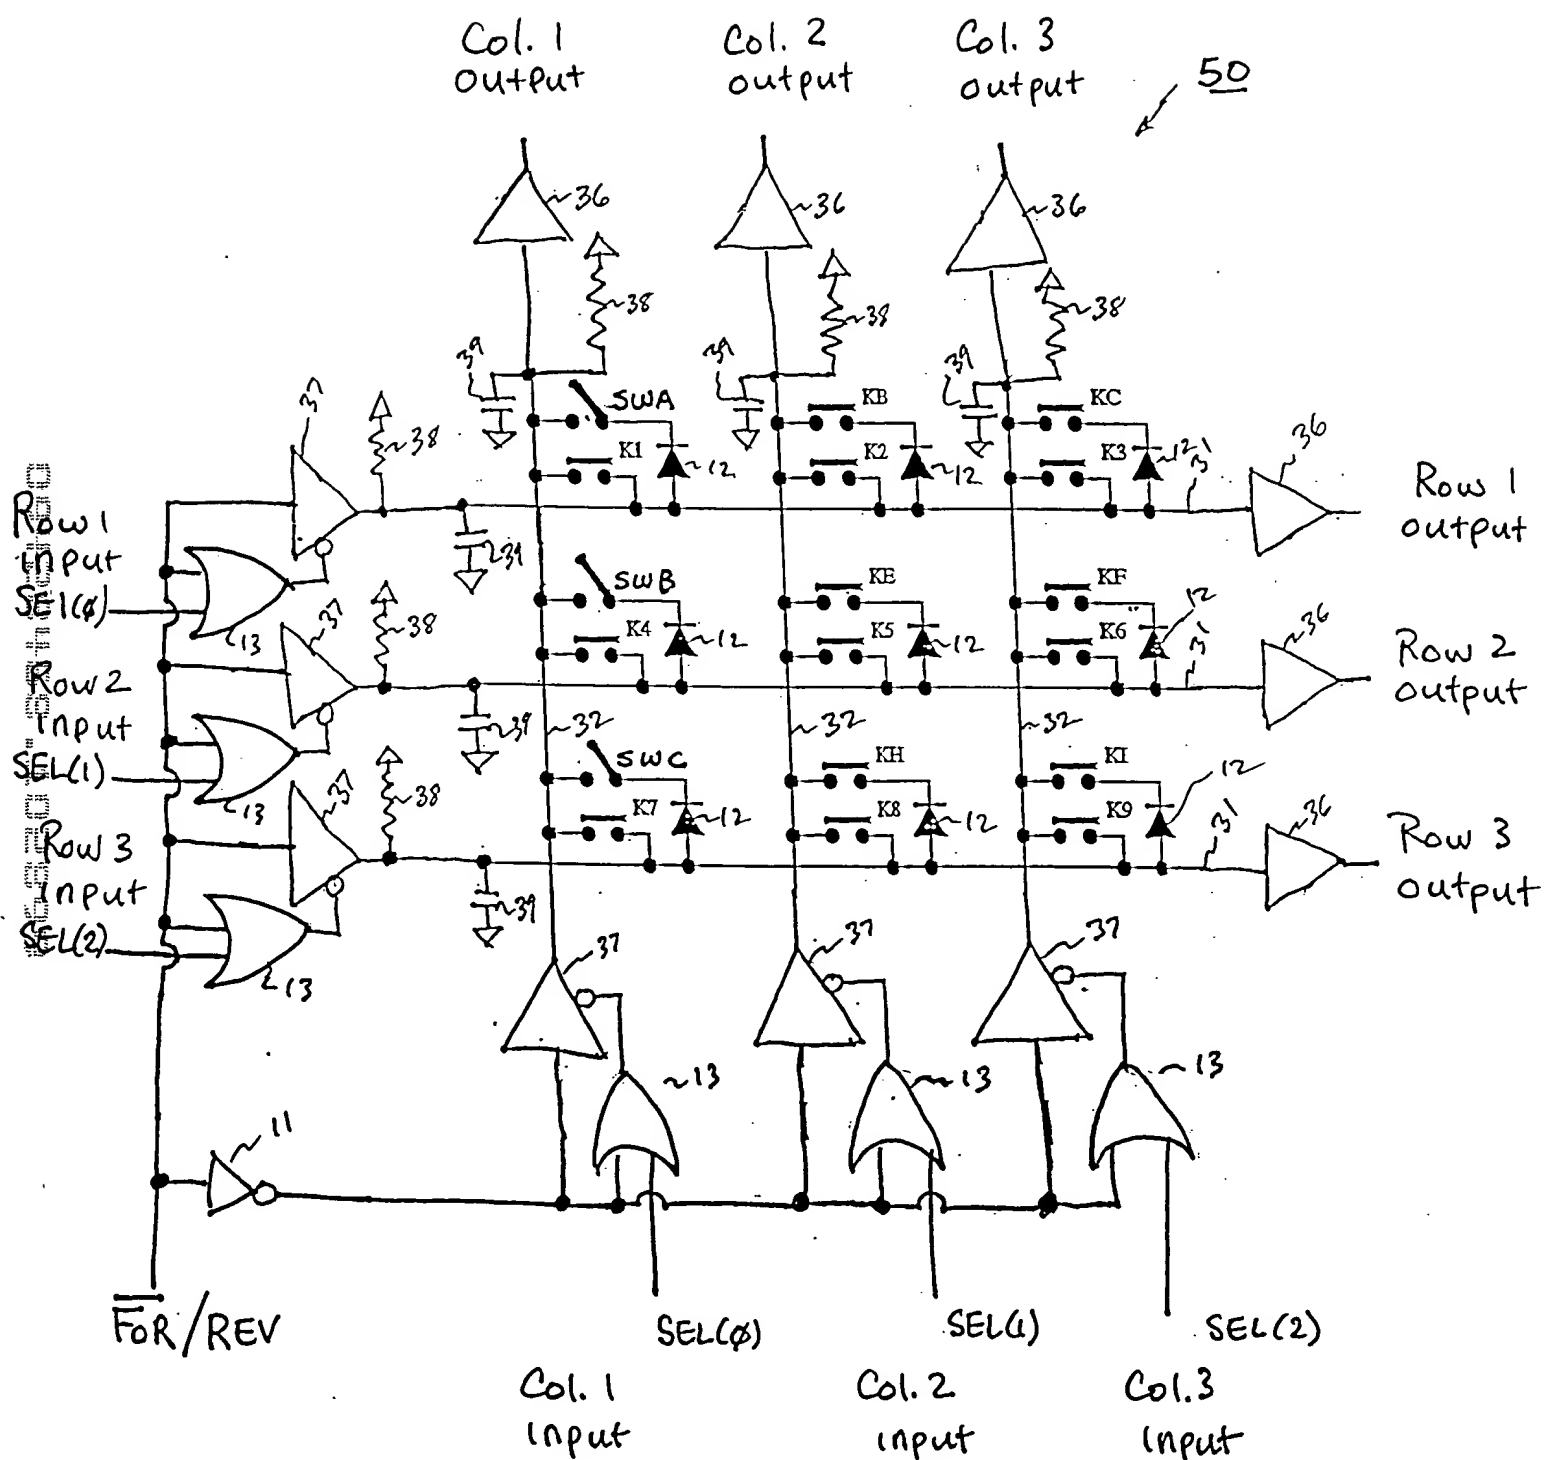 Col. 1
output
Col. 2
output
Col. 3
output
50
36
36
36
38
38
38
39
39
39
37
38
SWA
KB
KC
K1
12
K2
12
K3
12
31
36
Row 1
output
Row 1
input
SEl(φ)
13
39
37
38
SWB
KE
KF
12
K4
12
K5
12
K6
31
36
Row 2
output
Row 2
input
SEL(1)
13
39
32
32
32
37
38
SWC
KH
KI
12
K7
12
K8
12
K9
31
36
Row 3
output
Row 3
input
SEL(2)
13
39
37
37
37
13
13
13
11
FOR/REV
SEL(φ)
SEL(1)
SEL(2)
Col. 1
input
Col. 2
input
Col.3
input